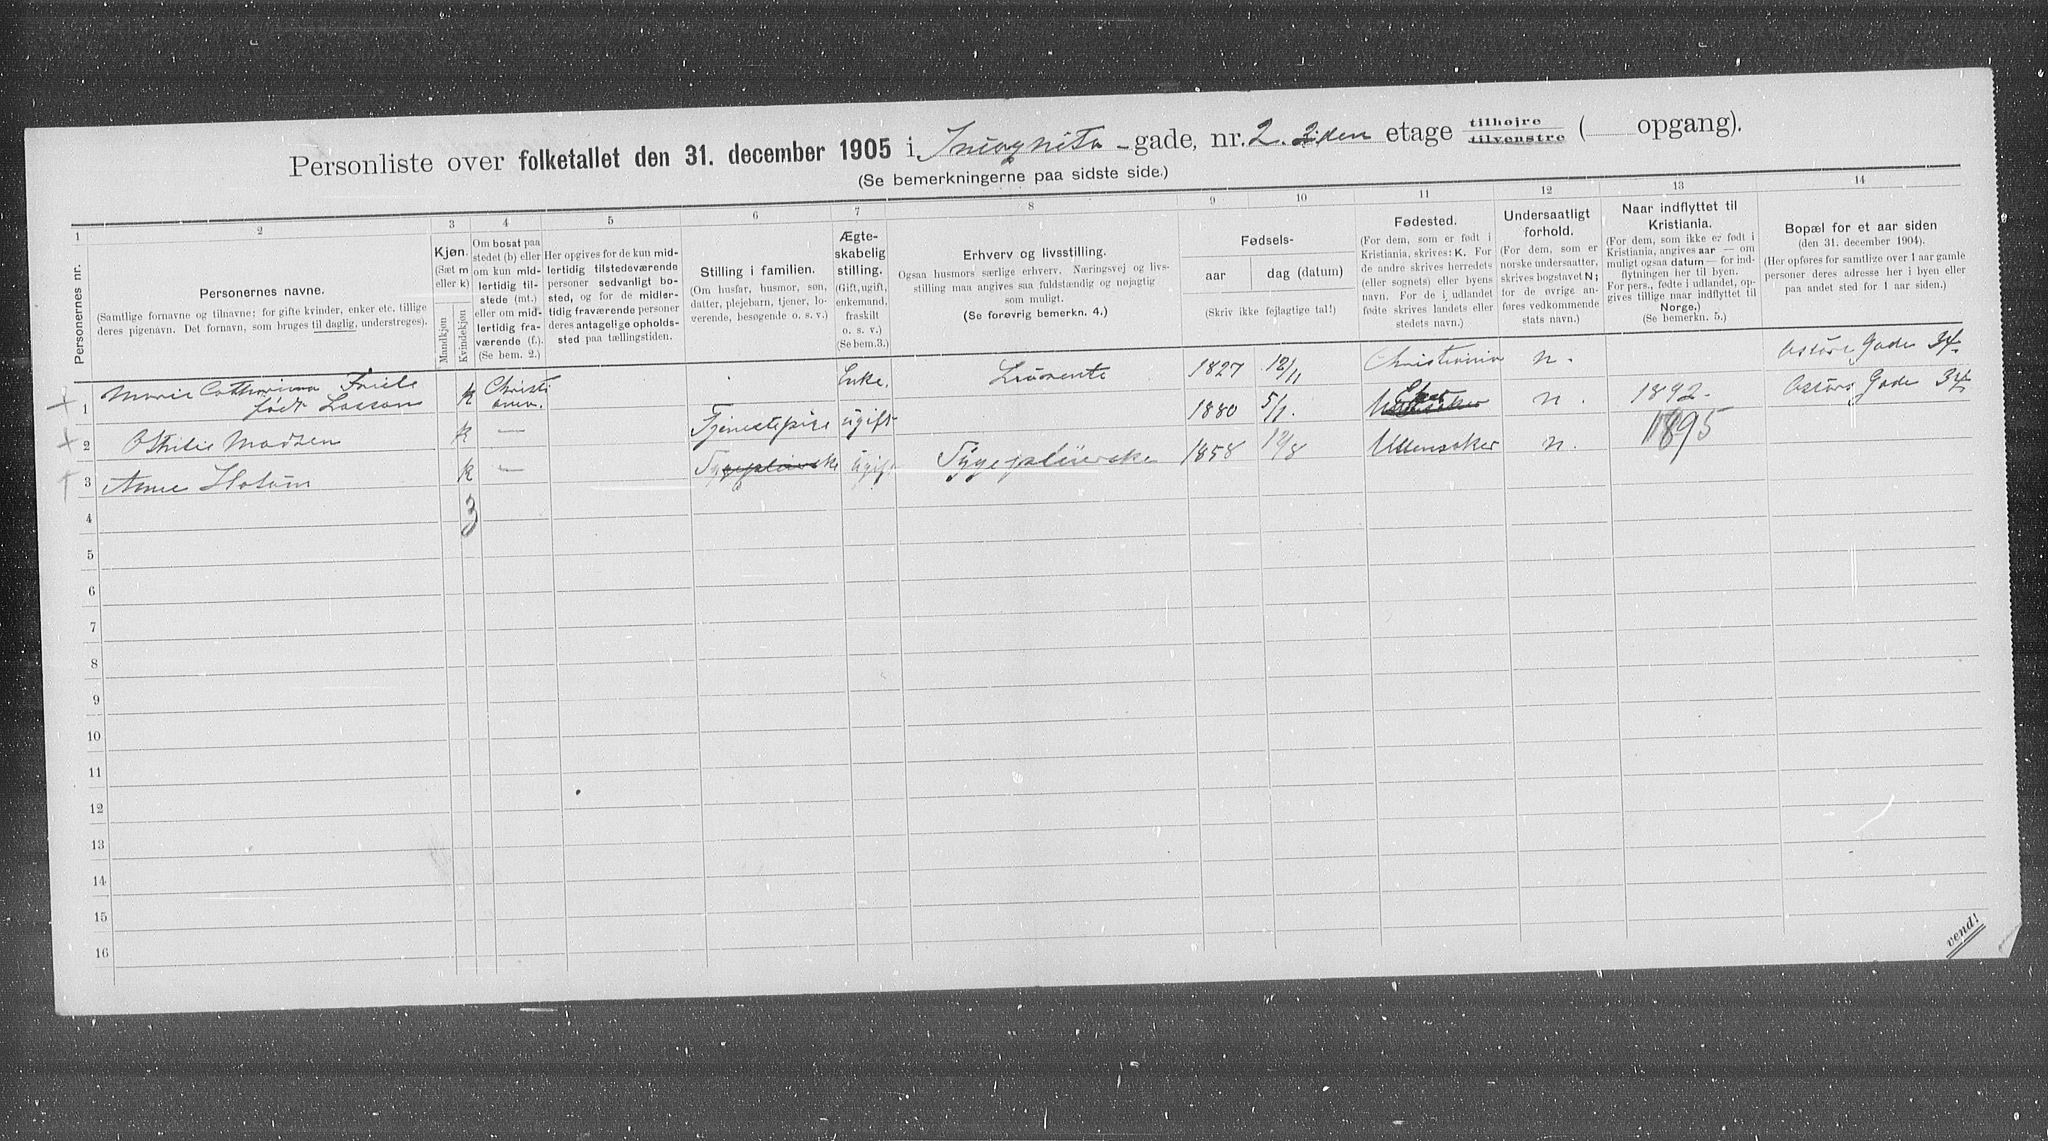 Personliste over folketallet den 31. december 1905 i Incognito - gade, nr. 2. 2den etage tilhøjre tilvenstre ( opgang).
(Se bemerkningerne paa sidste side.)
1 2 3 4 5 6 7 8 9 10 11 12 13 14
Personernes nr.
Personernes navne.
(Samtlige fornavne og tilnavne; for gifte kvinder, enker etc. tillige
deres pigenavn. Det fornavn, som bruges til daglig, understreges).
Kjøn.
(Sæt m
eller k)
Mandkjøn
Kvindekjøn
Om bosat paa
stedet (b) eller
om kun mid-
lertidig til-
stede (mt.)
eller om mid-
lertidig fra-
værende (f.).
(Se bem. 2.)
Her opgives for de kun mid-
lertidig tilstedeværende
personer sedvanlig bo-
sted, og for de midler-
tidig fraværende personer
deres antagelige opholds-
sted paa tællingstiden.
Stilling i familien.
(Om husfar, husmor, søn,
datter, plejebarn, tjener, lo-
gerende, besøgende o. s. v.)
Ægte-
skabelig
stilling.
(Gift, ugift,
enkemand,
fraskilt
o. s. v.)
(Se bem.3.)
Erhverv og livsstilling.
Ogsaa husmors særlige erhverv. Næringsvej og livs-
stilling maa angives saa fuldstændig og nøjagtig
som muligt.
(Se forøvrig bemerkn. 4.)
Fødsels-
aar dag (datum)
(Skriv ikke fejlagtige tal!)
Fødested.
(For dem, som er født i
Kristiania, skrives: K. For
de andre skrives herredets
(eller sognets) eller byens
navn. For de i udlandet
fødte skrives landets eller
stedets navn.)
Undersaatligt
forhold.
(For dem, som er
norske undersaatter,
skrives bogstavet N;
for de øvrige an-
føres vedkommende
stats navn.)
Naar indflyttet til
Kristiania.
(For dem, som ikke er født i
Kristiania, angives aar — om
muligt ogsaa datum — for ind-
flytningen her til byen.
For pers., fødte i udlandet, op-
gives tillige naar indflyttet til
Norge.)
(Se bemerkn. 5.)
Bopæl for et aar siden
(den 31. december 1904).
(Her opføres for samtlige over 1 aar gamle
personer deres adresse her i byen eller
paa andet sted for 1 aar siden.)
1 Marie Catharina Friele
født Lasson k Christi
ania. Enke. Livrente 1827 12/11 Christiania N. Oscars Gade 34
2 Othilie Madsen k — Tjenestepige ugift 1880 5/1. Eker N. 1892. Oscars Gade 34
3 Anne k — Sygepleierske ugift Sygepleierske 1858 12/8 Ullensaker N. 1895
3
4
5
6
7
8
9
10
11
12
13
14
15
16
vend!